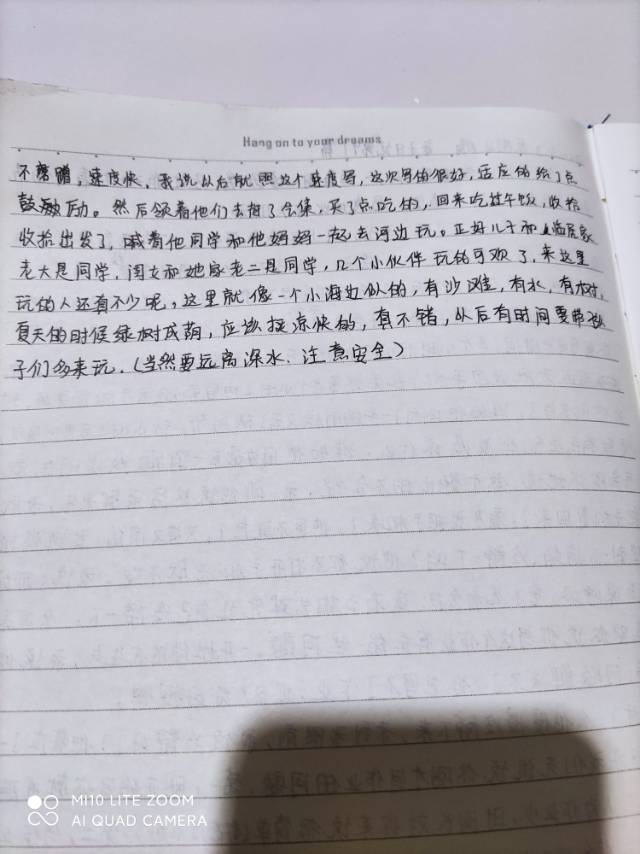 Hang on to your dreams
不磨蹭，速度快，我说以后就照这个速度写，这次写的很好，适应的给了点
鼓励。然后领着他们去赶了会集，买了点吃的，回来吃过午饭，收拾
收拾出发了，喊着他同学和他妈妈一起去河边玩。正好儿子和人临居家
老大是同学，闺女和她家老二是同学，几个小伙伴玩的可欢了，来这里
玩的人还真不少呢，这里就像一个小海边似的，有沙滩，有水，有树，
夏天的时候绿树成荫，应该挺凉快的，真不错，以后有时间要带孩
子们多来玩.（当然要远离深水.注意安全）
MI 10 LITE ZOOM
AI QUAD CAMERA